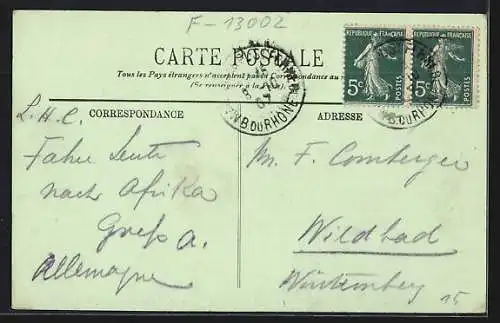 F-13002
CARTE POSTALE
Tous les Pays étrangers n'acceptent pas la Correspondance au
(Se renseigner à la Poste).
RÉPUBLIQUE FRANÇAISE
5c
POSTES
RÉPUBLIQUE FRANÇAISE
5c
POSTES
B. DU RHONE
B. DU RHONE
CORRESPONDANCE
ADRESSE
L. H. C.
Fahre heute
nach Afrika
Gruß A.
Allemagne
M. F.
Wildbad
Württemberg
15